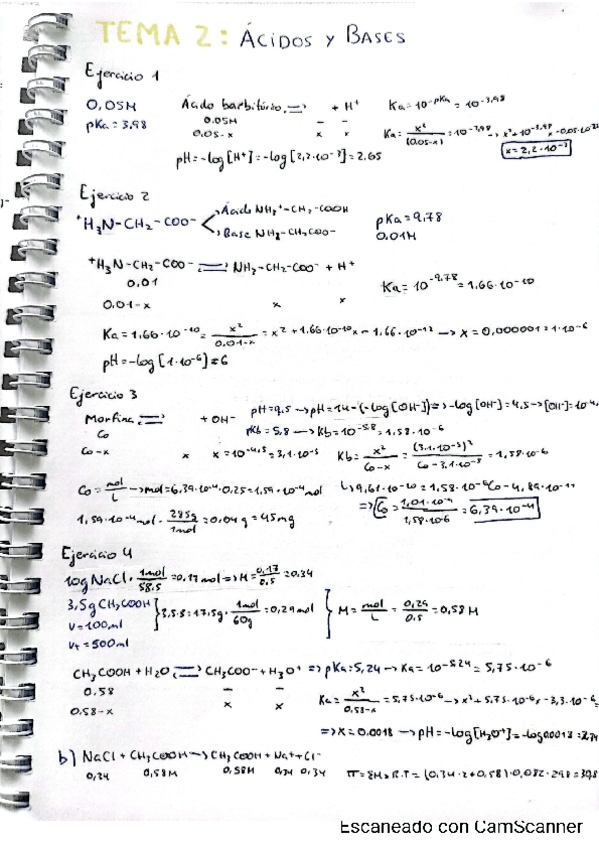 TEMA 2: ÁCIDOS Y BASES
Ejercicio 1
0,05M Ácido barbitúrico ⇌ + H⁺ Ka = 10^-pKa = 10^-3,98
pKa = 3,98 0.05M – –
0.05-x x x Ka = x²/(0.05-x) = 10^-3,98 → x² + 10^-3,98 x - 0.05·10
x = 2,2·10⁻³
pH = -log[H⁺] = -log[2,2·10⁻³] = 2.65
Ejercicio 2
⁺H₃N-CH₂-COO⁻ Ácido NH₃⁺-CH₂-COOH pKa = 9,78
Base NH₂-CH₂COO⁻ 0.01M
⁺H₃N-CH₂-COO⁻ ⇌ NH₂-CH₂-COO⁻ + H⁺
0,01 Ka = 10^-9.78 = 1,66·10⁻¹⁰
0,01-x x x
Ka = 1,66·10⁻¹⁰ = x²/0,01-x = x² + 1,66·10⁻¹⁰x - 1,66·10⁻¹² → x = 0,000001 = 1·10⁻⁶
pH = -log[1·10⁻⁶] = 6
Ejercicio 3
Morfina ⇌ + OH⁻ pH = 9,5 → pH = 14 - (-log[OH⁻]) ⇒ -log[OH⁻] = 4,5 → [OH⁻] = 10
Co pKb = 5,8 → Kb = 10^-5.8 = 1,58·10⁻⁶
Co-x x x = 10^-4,5 = 3,1·10⁻⁵ Kb = x²/Co-x = (3.1·10⁻⁵)²/Co-3,1·10⁻⁵ = 1,58·10⁻⁶
Co = mol/L → mol = 6,39·10⁻⁴·0.25 = 1,59·10⁻⁴ mol ↳ 9,61·10⁻¹⁰ = 1,58·10⁻⁶Co - 4,89·10⁻¹¹
1,59·10⁻⁴ mol · 285g/1mol = 0,04g = 45mg ⇒ Co = 1,01·10⁻⁹/1,58·10⁻⁶ = 6,39·10⁻⁴
Ejercicio 4
10g NaCl · 1mol/58.5 = 0,17 mol ⇒ M = 0,17/0,5 = 0,34
3,5g CH₃COOH 3,5·5 = 17,5g · 1mol/60g = 0,29 mol M = mol/L = 0,29/0.5 = 0,58 M
V = 100ml
Vt = 500ml
CH₃COOH + H₂O ⇌ CH₃COO⁻ + H₃O⁺ ⇒ pKa = 5,24 → Ka = 10^-5.24 = 5,75·10⁻⁶
0.58 – –
0,58-x x x Ka = x²/0,58-x = 5,75·10⁻⁶ → x² + 5,75·10⁻⁶x - 3,3·10⁻⁶
⇒ x = 0.0018 → pH = -log[H₃O⁺] = -log0.0018 = 2,74
b) NaCl + CH₃COOH → CH₃COOH + Na⁺ + Cl⁻
0,34 0,58M 0,58M 0,34 0,34 π = ΣM·R·T = (0,34·2+0,58)·0,082·298 =
Escaneado con CamScanner